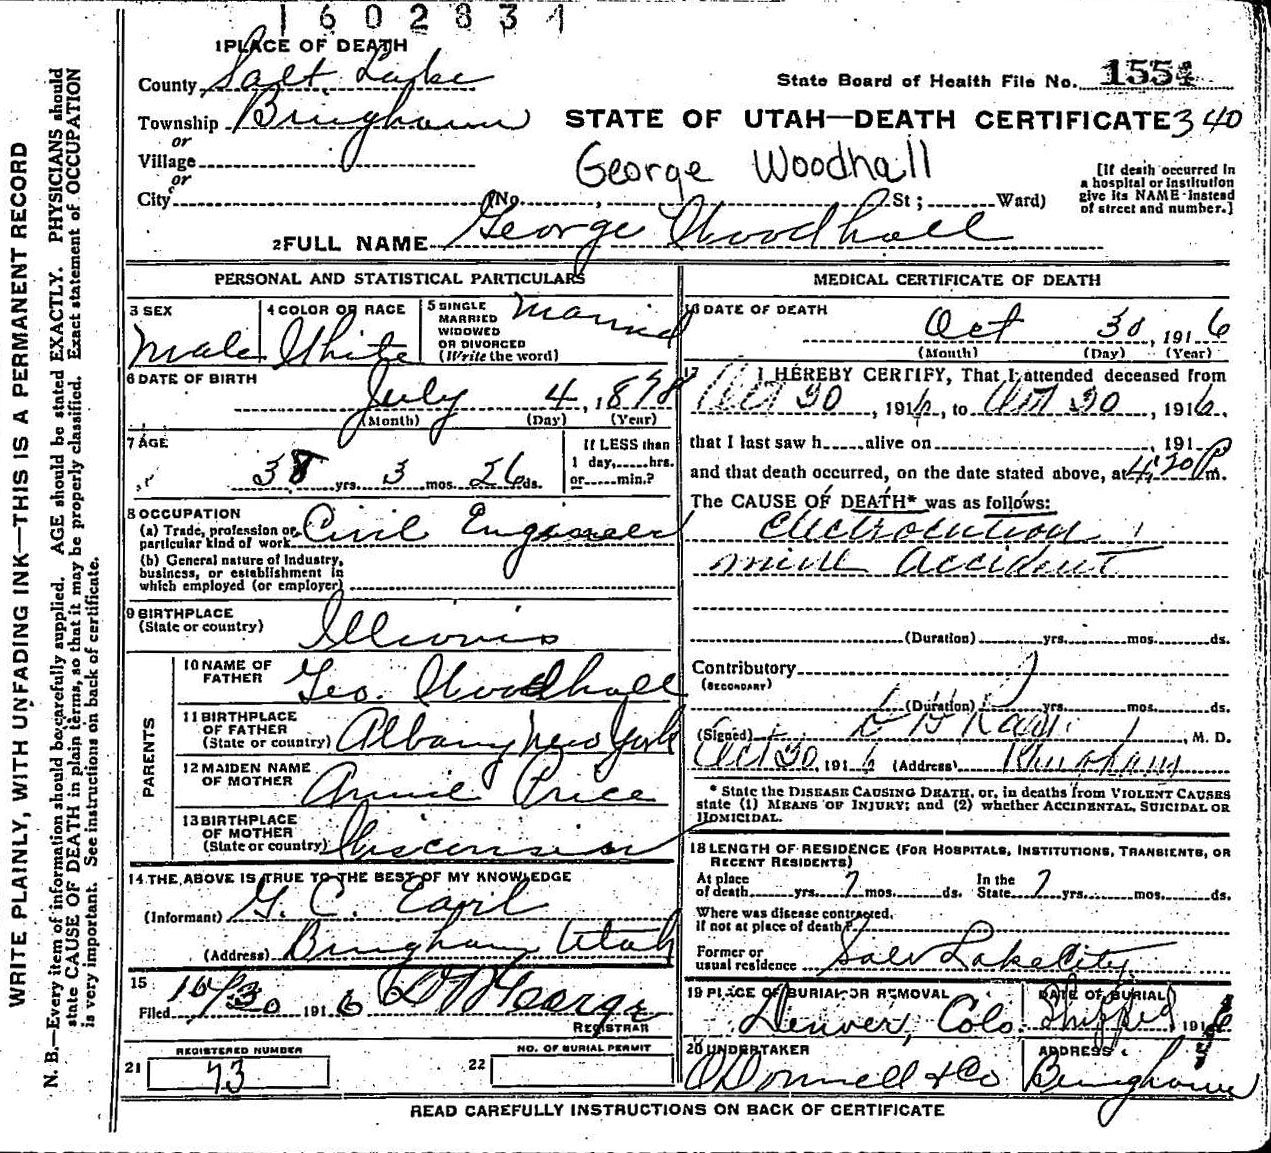 1602831
1 PLACE OF DEATH
County Salt Lake
State Board of Health File No. 1554
Township Bingham
STATE OF UTAH—DEATH CERTIFICATE 340
or
Village
George Woodhall
or
City (No. , St ; Ward)
[If death occurred in
a hospital or institution
give its NAME instead
of street and number.]
2 FULL NAME George Woodhall
PERSONAL AND STATISTICAL PARTICULARS
3 SEX
Male
4 COLOR OR RACE
White
5 SINGLE
MARRIED
WIDOWED
OR DIVORCED
(Write the word)
Married
6 DATE OF BIRTH
July 4, 1878
(Month) (Day) (Year)
7 AGE
38 yrs. 3 mos. 26 ds.
If LESS than
1 day, hrs.
or min.?
8 OCCUPATION
(a) Trade, profession or
particular kind of work Civil Engineer
(b) General nature of Industry,
business, or establishment in
which employed (or employer)
9 BIRTHPLACE
(State or country) Illinois
PARENTS
10 NAME OF
FATHER Geo. Woodhall
11 BIRTHPLACE
OF FATHER
(State or country) Albany New York
12 MAIDEN NAME
OF MOTHER Annie Price
13 BIRTHPLACE
OF MOTHER
(State or country) Wisconsin
14 THE ABOVE IS TRUE TO THE BEST OF MY KNOWLEDGE
(Informant) G. C. Earl
(Address) Bingham Utah
15
Filed 10/30 1916
George
REGISTRAR
REGISTERED NUMBER
21 73
NO. OF BURIAL PERMIT
22
MEDICAL CERTIFICATE OF DEATH
16 DATE OF DEATH
Oct 30, 1916
(Month) (Day) (Year)
17 I HEREBY CERTIFY, That I attended deceased from
Oct 30, 1916, to Oct 30, 1916.
that I last saw h alive on , 191
and that death occurred, on the date stated above, at 4:30 P m.
The CAUSE OF DEATH* was as follows:
Electrocution
mine accident
(Duration) yrs. mos. ds.
Contributory
(SECONDARY)
(Duration) yrs. mos. ds.
(Signed) , M. D.
Oct 30, 1916 (Address) Bingham
* State the DISEASE CAUSING DEATH, or, in deaths from VIOLENT CAUSES
state (1) MEANS OF INJURY; and (2) whether ACCIDENTAL, SUICIDAL OR
HOMICIDAL.
18 LENGTH OF RESIDENCE (FOR HOSPITALS, INSTITUTIONS, TRANSIENTS, OR
RECENT RESIDENTS)
At place
of death yrs. 7 mos. ds.
In the
State 7 yrs. mos. ds.
Where was disease contracted,
if not at place of death?
Former or
usual residence Salt Lake City
19 PLACE OF BURIAL OR REMOVAL
Denver, Colo.
DATE OF BURIAL
Shipped 1916
20 UNDERTAKER
O'Donnell & Co
ADDRESS
Bingham
READ CAREFULLY INSTRUCTIONS ON BACK OF CERTIFICATE
WRITE PLAINLY, WITH UNFADING INK—THIS IS A PERMANENT RECORD
N. B.—Every item of information should be carefully supplied. AGE should be stated EXACTLY. PHYSICIANS should
state CAUSE OF DEATH in plain terms, so that it may be properly classified. Exact statement of OCCUPATION
is very important. See instructions on back of certificate.